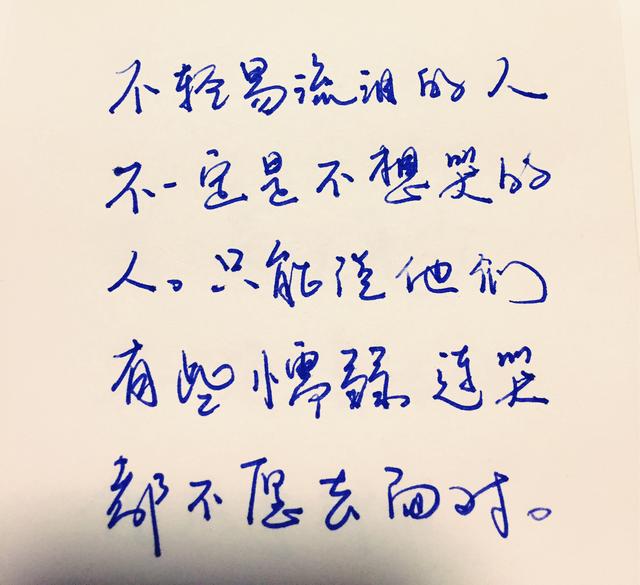 不轻易流泪的人
不一定是不想哭的
人。只能说他们
有些懦弱连哭
都不愿去面对。